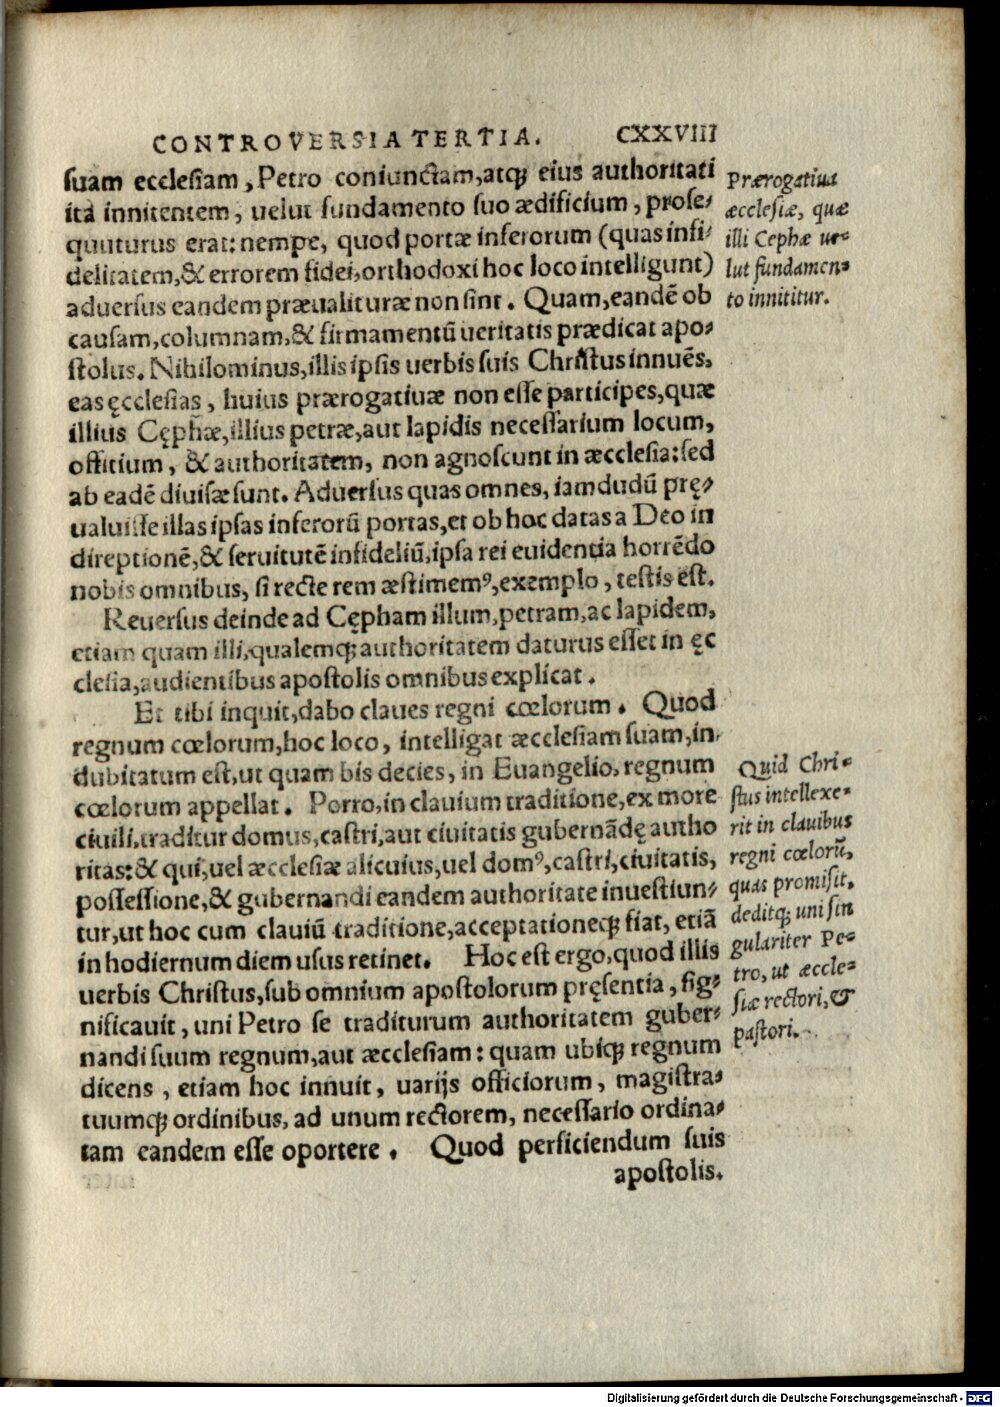 CONTROVERSIA TERTIA. CXXVIII
ſuam eccleſiam, Petro coniunctam, atq́ꝫ eius authoritati
ita innitentem, uelut fundamento ſuo ædificium, proſe⸗
quuturus erat: nempe, quod portæ inferorum (quas infi⸗
delitatem, & errorem fidei, orthodoxi hoc loco intelligunt)
aduerſus eandem præualituræ non ſint. Quam, eandē ob
cauſam, columnam, & firmamentū ueritatis prædicat apo⸗
ſtolus. Nihilominus, illis ipſis uerbis ſuis Chriſtus innuēs,
eas ęccleſias, huius prærogatiuæ non eſſe participes, quæ
illius Cęphæ, illius petræ, aut lapidis neceſſarium locum,
officium, & authoritatem, non agnoſcunt in æccleſia: ſed
ab eadē diuiſæ ſunt. Aduerſus quas omnes, iamdudū prę⸗
ualuiſſe illas ipſas inferorū portas, et ob hoc datas a Deo in
direptionē, & ſeruitutē infideliū, ipſa rei euidentia horrēdo
nobis omnibus, ſi recte rem æſtimemꝰ, exemplo, teſtis eſt.
Reuerſus deinde ad Cępham illum, petram, ac lapidem,
etiam quam illi, qualemq́ꝫ authoritatem daturus eſſet in ęc
cleſia, audientibus apoſtolis omnibus explicat.
Et tibi inquit, dabo claues regni cœlorum. Quod
regnum cœlorum, hoc loco, intelligat æccleſiam ſuam, in⸗
dubitatum eſt, ut quam bis decies, in Euangelio, regnum
cœlorum appellat. Porro, in clauium traditione, ex more
ciuili, traditur domus, caſtri, aut ciuitatis gubernādę autho
ritas: & qui, uel æccleſiæ alicuius, uel domꝰ, caſtri, ciuitatis,
poſſeſſione, & gubernandi eandem authoritate inueſtiun⸗
tur, ut hoc cum clauiū traditione, acceptationeq́ꝫ fiat, etiā
in hodiernum diem uſus retinet. Hoc eſt ergo, quod illis
uerbis Chriſtus, ſub omnium apoſtolorum pręſentia, ſig⸗
nificauit, uni Petro ſe traditurum authoritatem guber⸗
nandi ſuum regnum, aut æccleſiam: quam ubiq́ꝫ regnum
dicens, etiam hoc innuit, uarijs officiorum, magiſtra⸗
tuumq́ꝫ ordinibus, ad unum rectorem, neceſſario ordina⸗
tam eandem eſſe oportere. Quod perficiendum ſuis
apoſtolis.
Prærogatiua
æccleſiæ, quæ
illi Cephæ ue⸗
lut fundamen⸗
to innititur.
Quid Chri⸗
ſtus intellexe⸗
rit in clauibus
regni cœlorū,
quas promiſit,
deditq́ꝫ uni ſin
gulariter Pe⸗
tro, ut æccle⸗
ſiæ rectori, &
paſtori.
Digitalisierung gefördert durch die Deutsche Forschungsgemeinschaft - DFG